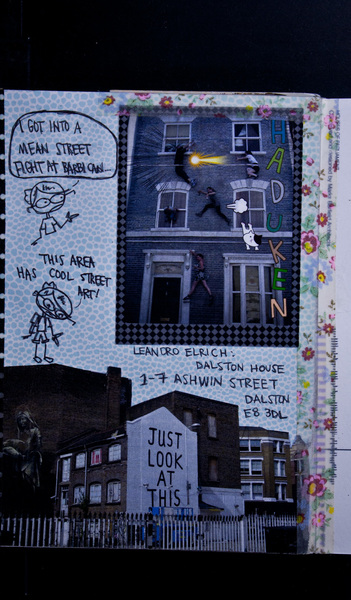 I GOT INTO A
MEAN STREET
FIGHT AT BARBICAN...
HADUKEN
THIS AREA
HAS COOL STREET
ART!
LEANDRO ELRICH:
DALSTON HOUSE
1-7 ASHWIN STREET
DALSTON
E8 3DL
JUST
LOOK
AT
THIS